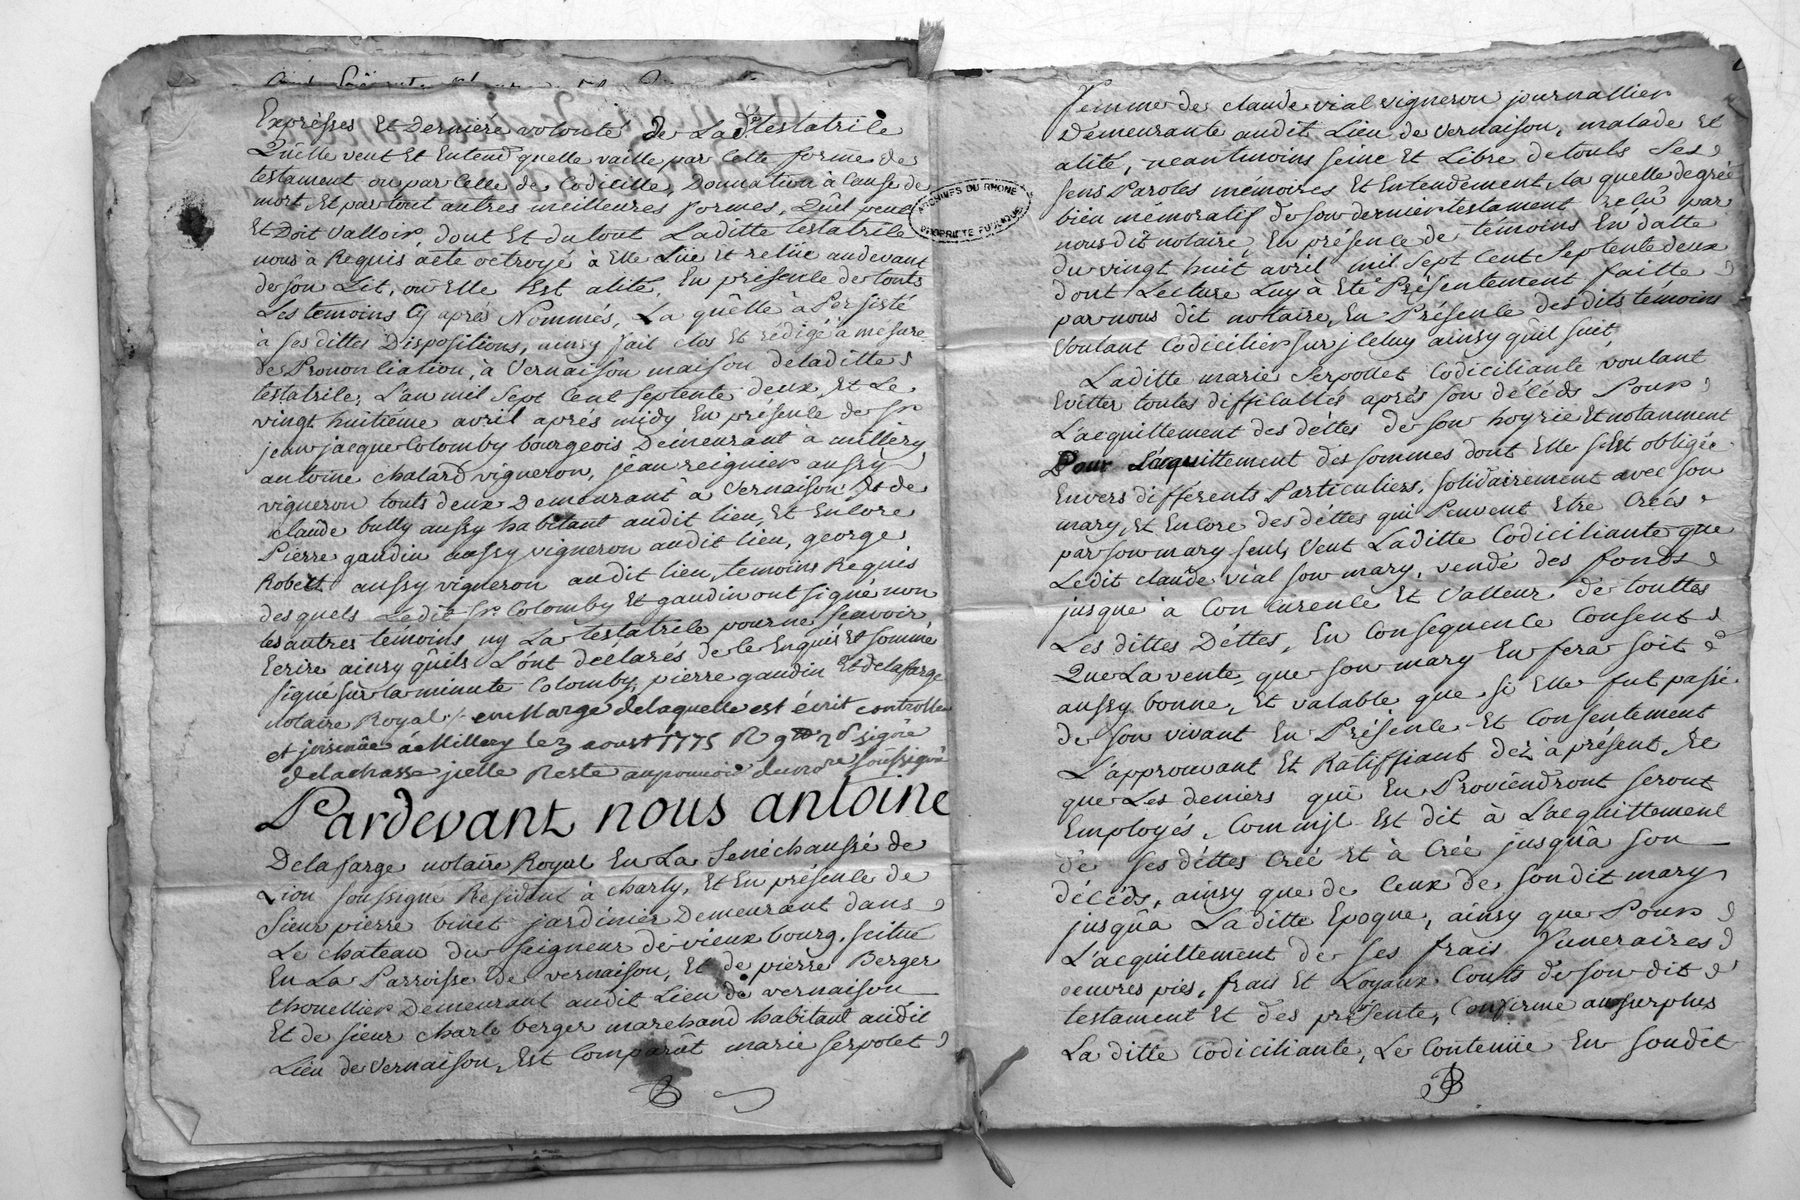 Expresses Et Derniere volonté de Lad. testatrice
Qu'elle veut Et Entend quelle vaille par Cette forme de
testament ou par Celle de Codicille, Donnation à Cause de
mort, Et par tout autres meilleures formes, Qu'il peut
Et Doit Valloir, dont Et du tout Laditte testatrice
nous à Requis acte octroyé à Elle Lüe Et relüe au devant
de son Lit, ou Elle Est alité, En présence de touts
Les temoins Cy aprés Nommés, La quelle à Persisté
à ses dittes Dispositions, ainsy fait clos Et rédigé à mesure
de Prononciation, à Vernaison maison de laditte
testatrice, L'an mil Sept Cent Septente deux, Et Le
vingt huitiéme avril aprés midy En présence de Sr
jean jacque Colomby bourgeois Demeurant à millery
antoine chalard vigneron, jean reignier aussy
vigneron touts deux Demeurant à Vernaison, Et de
claude bully aussy habitant audit lieu, Et Encore
Pierre gaudin aussy vigneron audit lieu, george
Robert aussy vigneron audit lieu, temoins Requis
desquels Ledit Sr Colomby Et gaudin ont signé non
les autres temoins ny La testatrice pour ne scavoir
Ecrire ainsy qu'ils L'ont déclarés de ce Enquis Et sommé
signé sur la minute Colomby, pierre gaudin Et delafarge
notaire Royal / en Marge de laquelle est écrit controllé
et insinüé à Millery le 3 aoust 1775 R signé
delachasse icelle Reste au pouvoir du nore soussigné
Pardevant nous antoine
Delafarge notaire Royal En La Senéchaussé de
Lion soussigné Résidant à charly, Et En présence de
Sieur pierre binet jardinier Demeurant dans
Le chateau du seigneur de vieux bourg, scitué
En La Parroisse de vernaison, Et de pierre Berger
thonellier Demeurant audit Lieu de vernaison
Et de sieur charle berger marchand habitant audit
Lieu de Vernaison, Est Comparüt marie Serpolet
ARCHIVES DU RHONE
PROPRIETE PUBLIQUE
femme de claude vial vigneron journallier
Demeurante audit Lieu de Vernaison, malade Et
alité, néantmoins seine Et Libre de touts Ses
sens Paroles mémoires Et Entendement, la quelle de gré
bien mémoratif de son dernier testament reçû par
nous dit notaire, En présence de témoins En datte
du vingt huit avril mil Sept Cent Septente deux
dont Lecture Luy à Eté Présentement faitte
par nous dit notaire, En Présence des dits témoins
Voulant Codicilier sur jceluy ainsy qu'il suit,
Laditte marie Serpollet Codiciliante voulant
Evitter toutes difficultés aprés son décéds Pour
L'acquittement des déttes de son hoyrie Et notamment
Pour Lacquittement des sommes dont Elle s'est obligée
Envers differents Particuliers, solidairement avec son
mary, Et Encore des déttes qui Peuvent Etre Créés
par son mary seul, Veut Laditte Codiciliante que
Ledit claude vial son mary, vende des fonds
jusque à Concurence Et Valleur de touttes
Les dittes Déttes, En Consequence Consent
Que La vente que son mary En fera soit
aussy bonne, Et valable que si Elle fut passé
de son vivant En Présence Et Consentement
L'approuvant Et Ratiffiant dez à présent, Et
que Les deniers qui En Proviendront seront
Employés, Comm'jl Est dit à L'acquittement
de ses déttes créé Et à Créé jusqu'a son
décéds, ainsy que de Ceux de son dit mary
jusqu'a Laditte Epoque, ainsy que Pour
L'acquittement de ses frais funeraires
oeuvres pies, frais Et Loyaux Couts de son dit
testament Et des présente, Confirme au surplus
La ditte Codiciliante, Le Contenüe En son dit